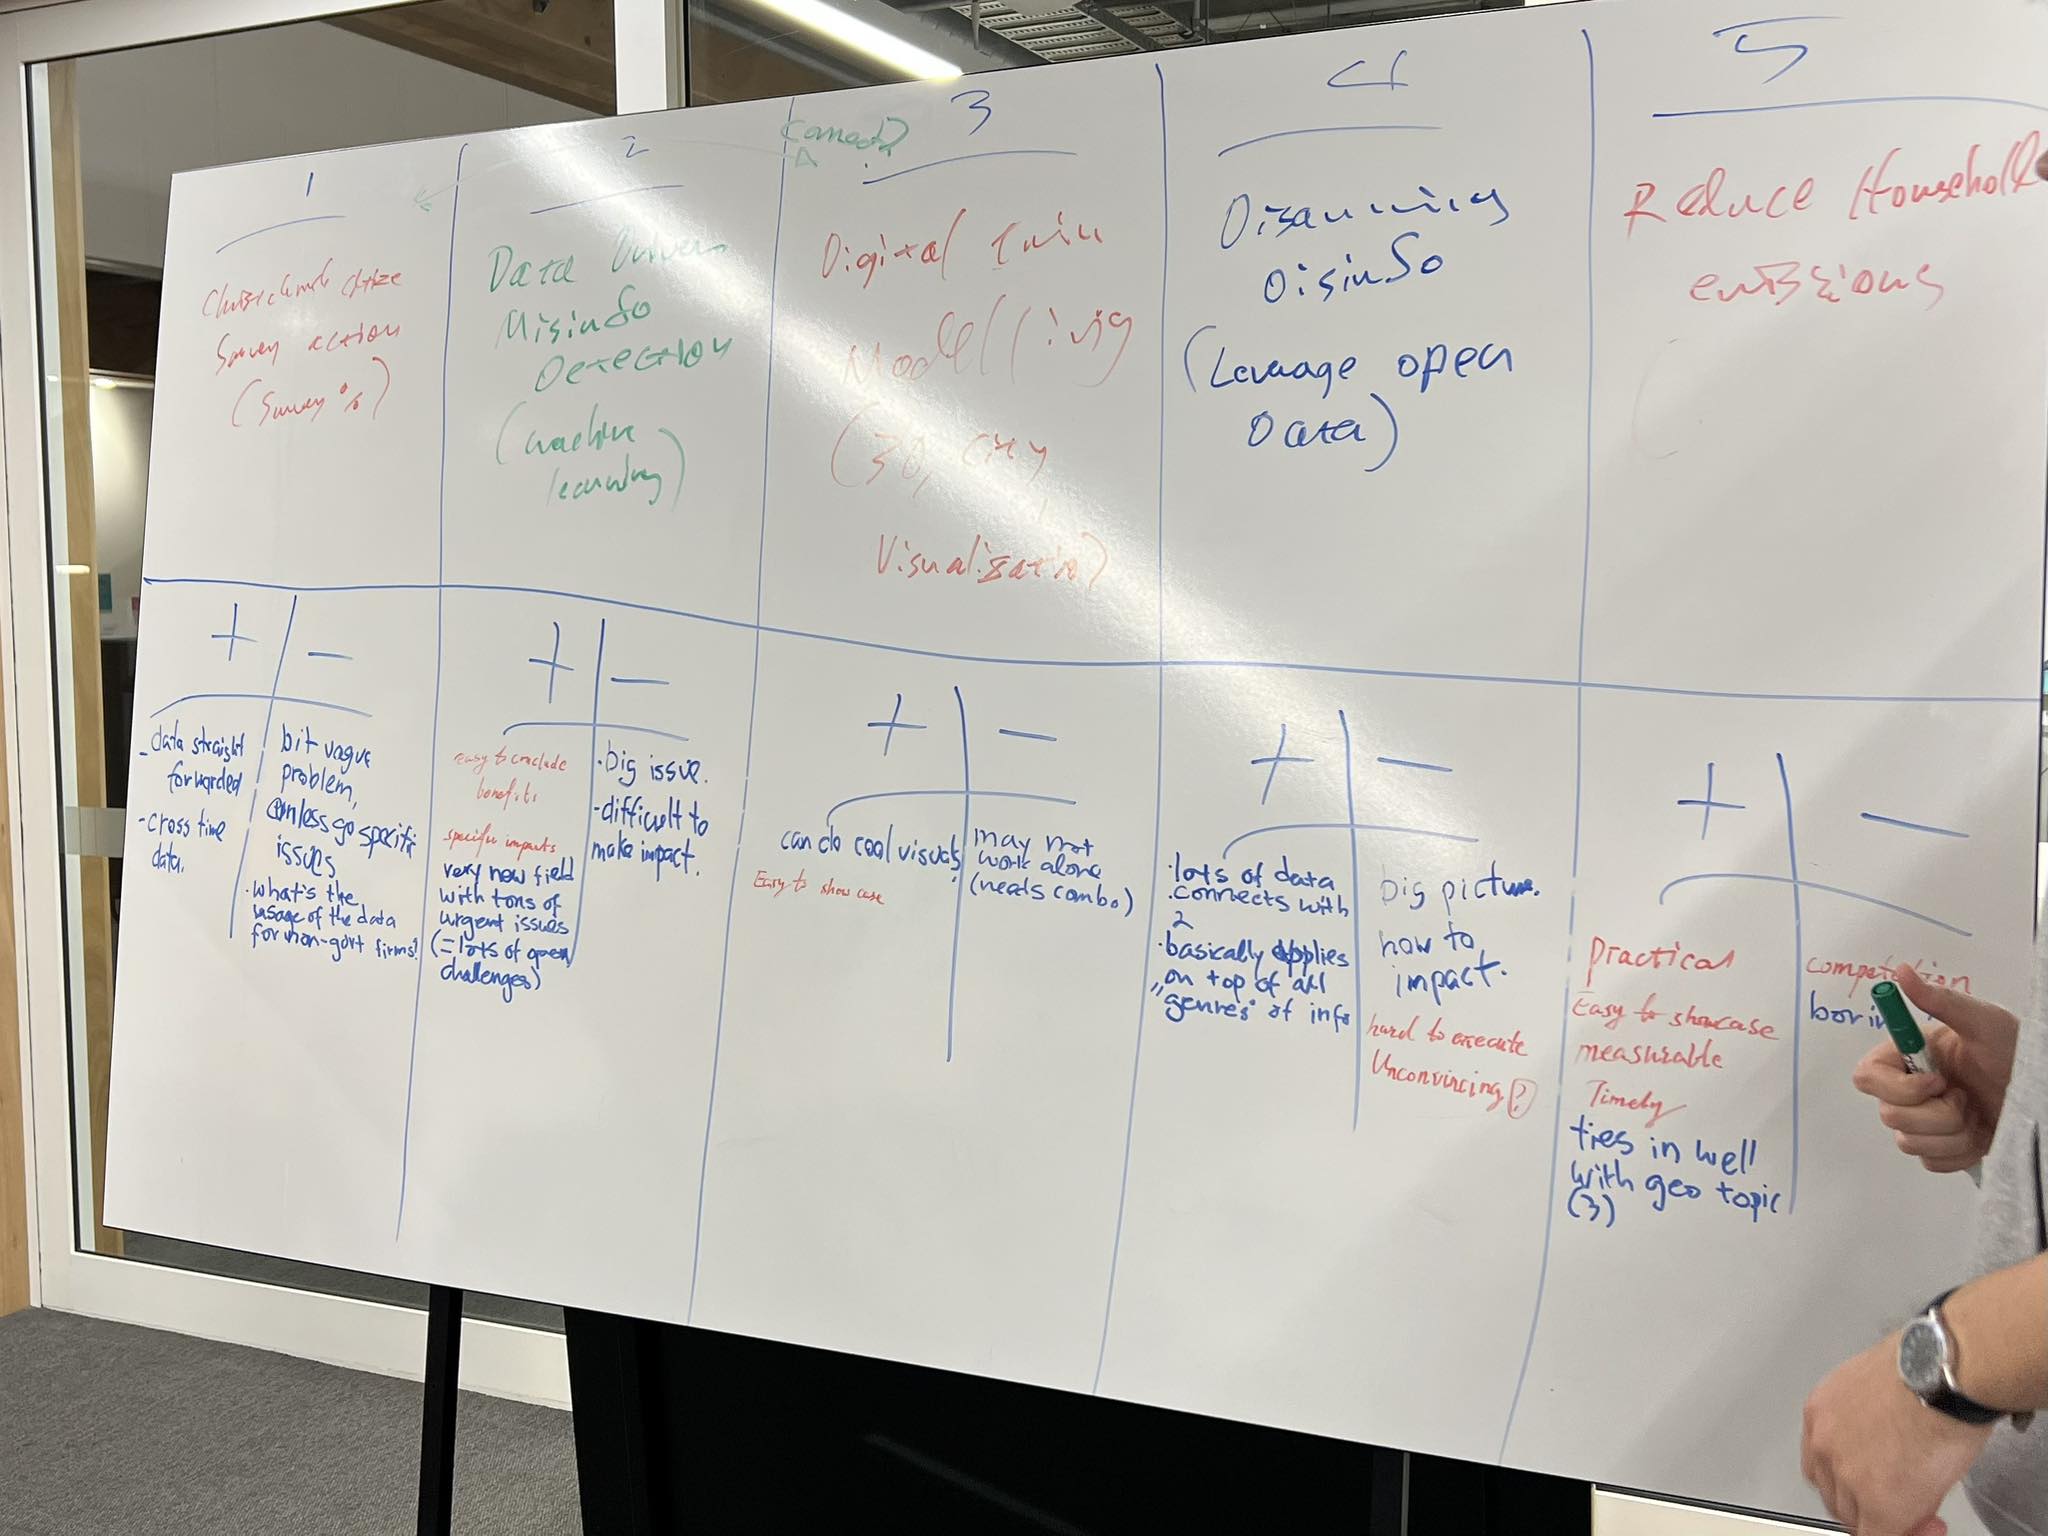 1
Christchurch citize
Survey action
(Survey %)
+
−
- data straight
forwarded
- cross time
data.
bit vague
problem,
unless go specific
issues
· what's the
usage of the data
for non-govt firms?
2
Data Driven
Misinfo
Detection
(machine
learning)
+
−
easy to conclude
benefits
specific impacts
very new field
with tons of
urgent issues
(= lots of open
challenges)
· big issue.
- difficult to
make impact.
3
Digital twin
Modelling
(3D, city,
Visualizatio)
+
−
can do cool visuals
Easy to show case
may not
work alone
(needs combo)
4
Disarming
Disinfo
(Leverage open
Data)
+
−
· lots of data
· connects with
2
· basically applies
on top of all
„genres" of info
big picture.
how to
impact.
hard to execute
Unconvincing?
5
Reduce Household
emissions
+
−
practical
Easy to showcase
measurable
Timely
ties in well
with geo topic
(3)